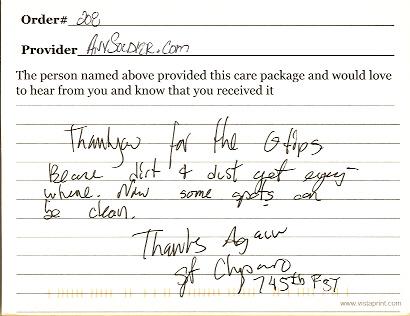 Order# 208
Provider AnySoldier.com
The person named above provided this care package and would love
to hear from you and know that you received it
Thankyou for the Qtips
dirt & dust get every-
where. Now some spots can
be clean.
Thanks Again
745th FST
www.vistaprint.com